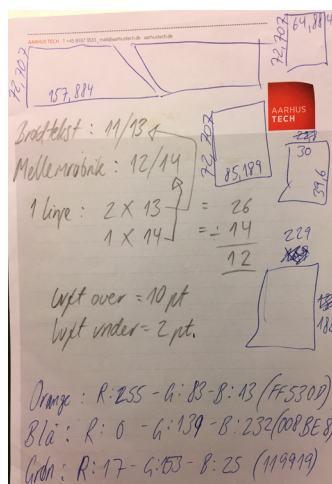 AARHUS TECH · T +45 8937 3533 _ mail@aarhustech.dk aarhustech.dk
64,884
72,707
72,707
157,884
AARHUS
TECH
Brødtekst : 11/13
Mellemrubrik : 12/14
72,707
85,189
30
39,6
1 linje : 2 X 13 = 26
1 X 14 = ÷ 14
12
229
Luft over = 10 pt
Luft under = 2 pt.
Orange : R: 255 - G: 83 - B: 13 (FF530D)
Blå : R: 0 - G: 139 - B: 232 (008BE8)
Grøn : R: 17 - G: 153 - B: 25 (119919)